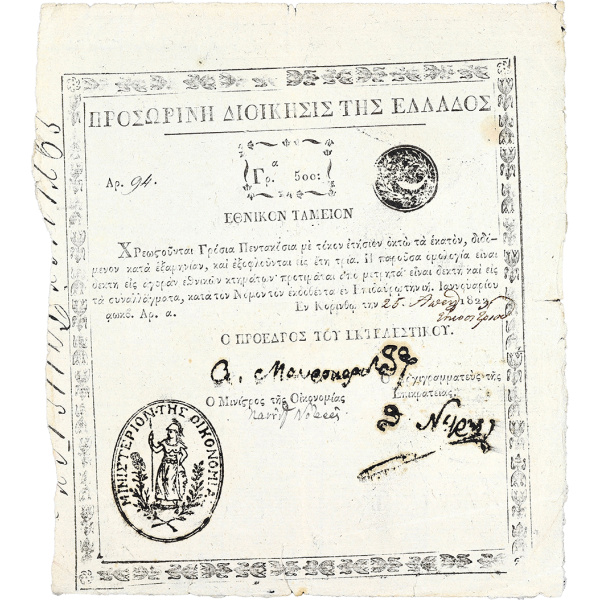 ΠΡΟΣΩΡΙΝΗ ΔΙΟΙΚΗΣΙΣ ΤΗΣ ΕΛΛΑΔΟΣ
α
Αρ. 94.
Γρ. 500:
ΕΘΝΙΚΟΝ ΤΑΜΕΙΟΝ
Χρεωςοῦνται Γρόσια Πεντακόσια μὲ τόκον ἐτήσιον ὀκτὼ τὰ ἑκατὸν, διδό-
μενον κατὰ ἑξαμηνίαν, καὶ ἐξοφλοῦνται εἰς ἔτη τρία. Η παροῦσα ὁμολογία εἶναι
δεκτὴ εἰς ἀγορὰν ἐθνικῶν κτημάτων· προτιμᾶται εἶναι δεκτὴ καὶ εἰς
τὰ συνάλλαγματα, κατὰ τὸν Νόμον τὸν ἐκδοθέντα ἐν Επιδαύρῳ τὴν Ιαννουαρίου
αωκβ. Αρ. α.
Εν Κορίνθῳ τὴν 25 1822
Ο ΠΡΟΕΔΡΟΣ ΤΟΥ ΕΚΤΕΛΕΣΤΙΚΟΥ.
Α. Μαυροκορδ
Ο Μινίςρος τῆς Οικονομίας
Ο Αρχιγραμματεὺς τῆς
Επικρατείας.
Νέγρης
ΜΙΝΙΣΤΕΡΙΟΝ ΤΗΣ ΟΙΚΟΝΟΜΙΑΣ